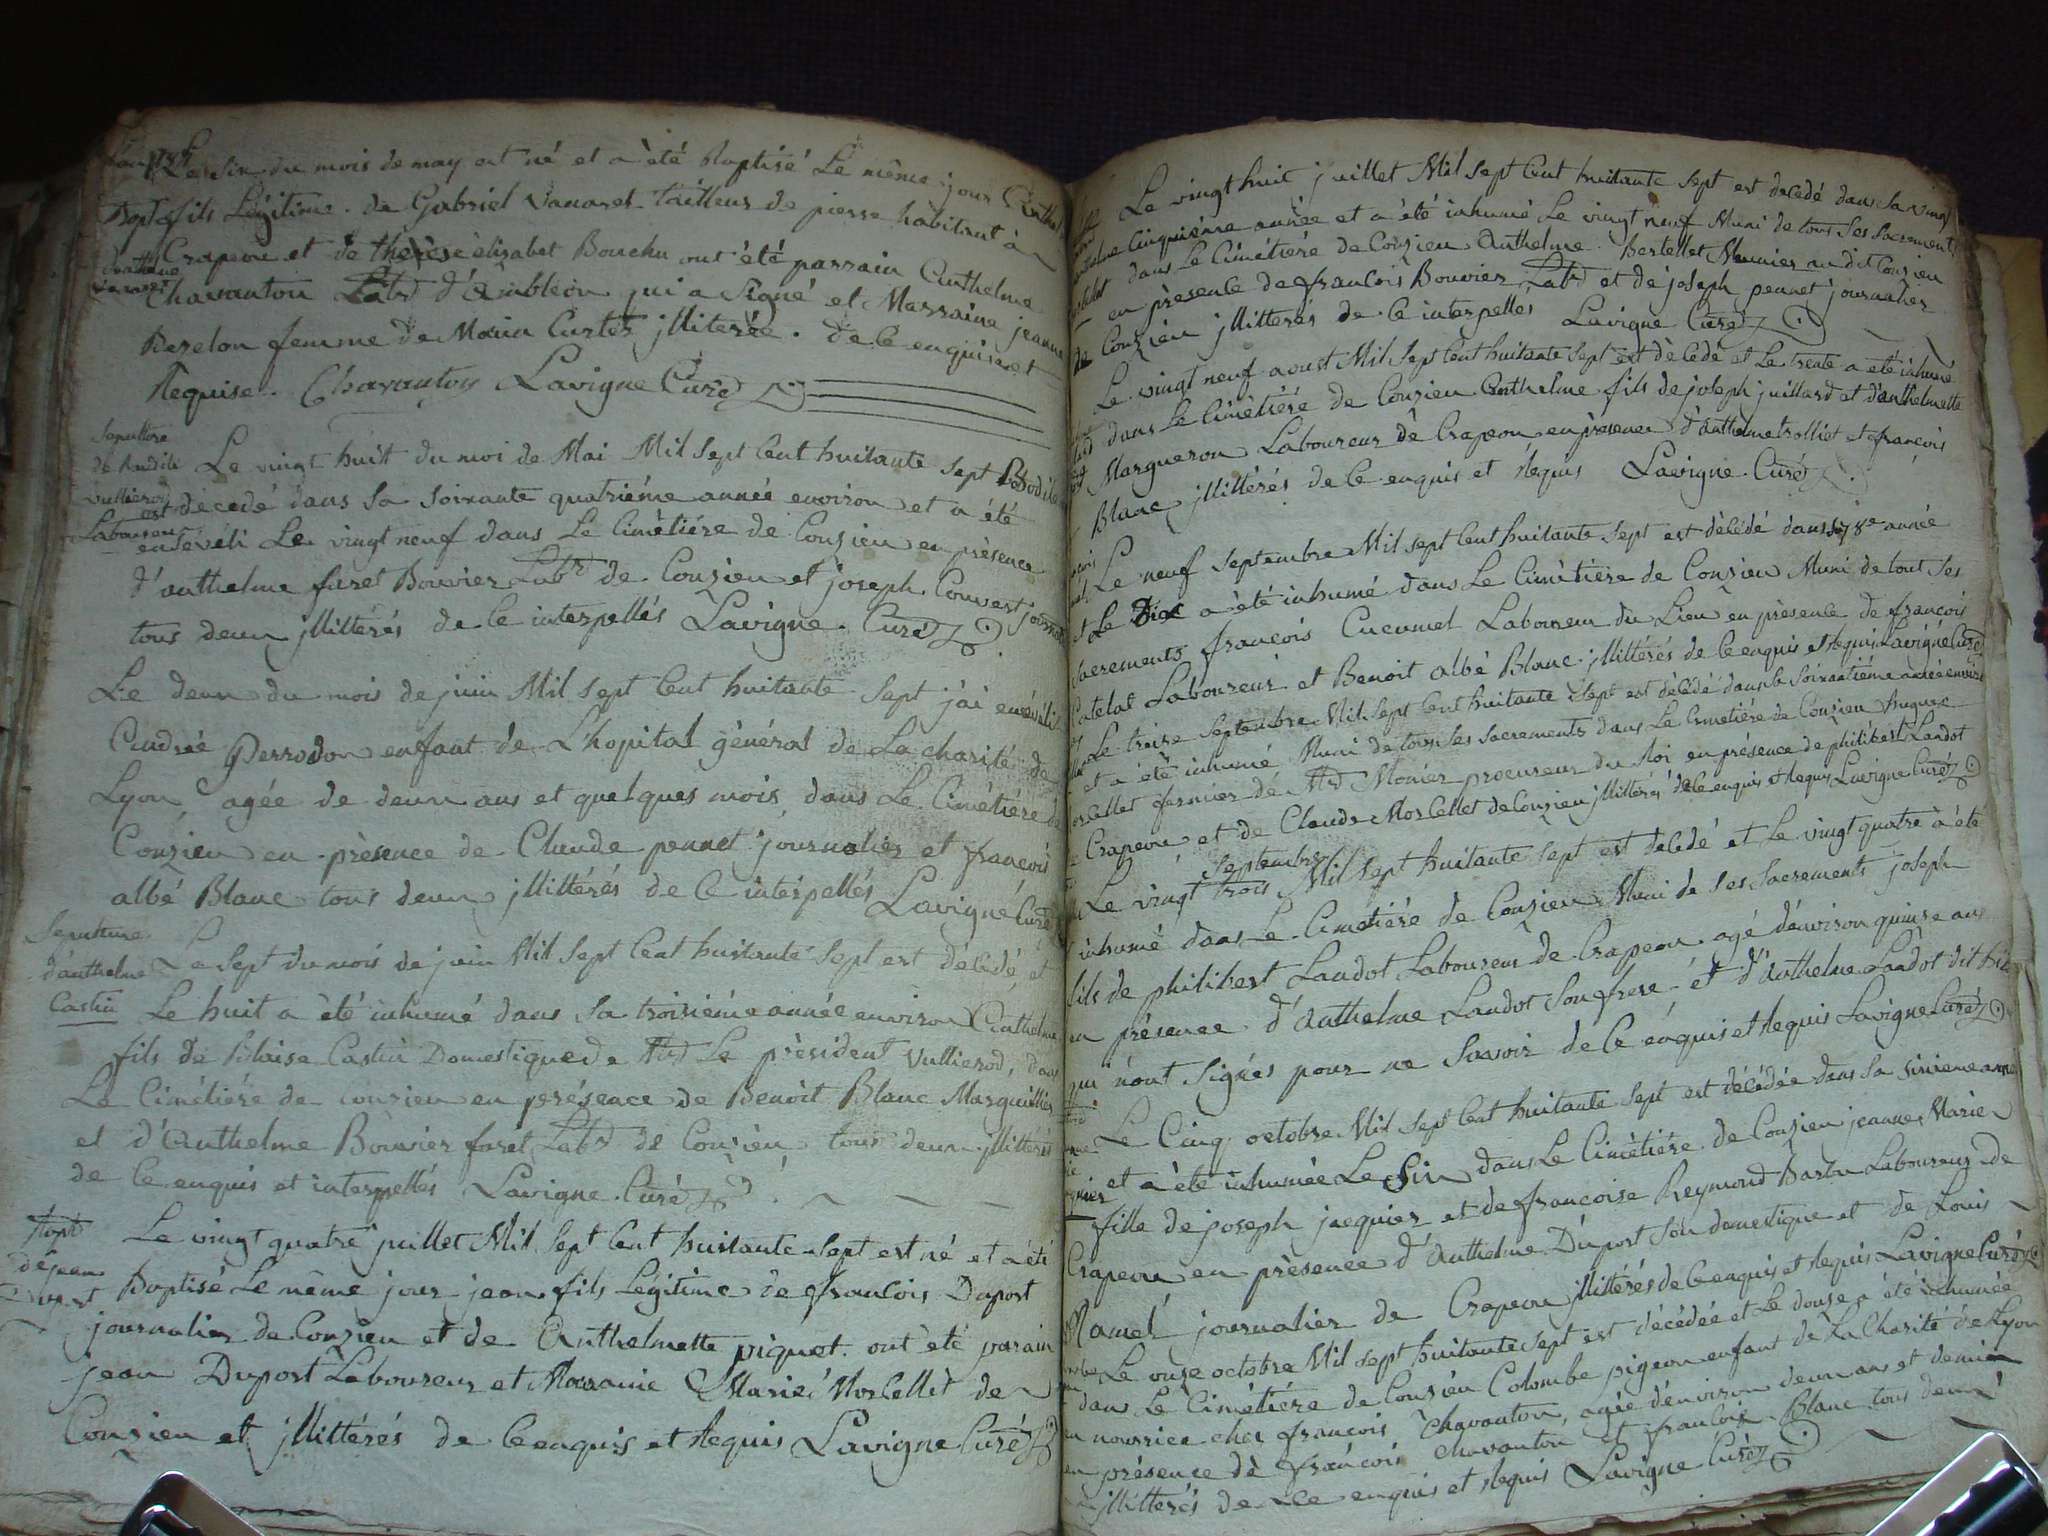 Le six du mois de may est né et a èté Baptisé Le même jour
Bapt. fils Légitime de Gabriel Vanaret tailleur de pierre habitant à
Crapeou et de thérèse èlisabet Bouchu ont èté parrain Anthelme
Chavanton Labr d'Ambléon qui a signé et Marraine jeanne
Rezelon femme de illiterée. de ce enquise et
Requise. Chavanton Lavigne Curé
Sepulture
Le vingt huit du moi de Mai Mil sept Cent huitante sept
vullierod
est decedé dans sa soixante quatriéme année environ et a été
Laboureur
enséveli Le vingt neuf dans Le Cimètiére de Conzieu en présence
d'anthelme furet Bouvier Labr de Conzieu et joseph Convert
tous deux illittérés de ce interpellés Lavigne Curé
Le deux du mois de juin Mil sept Cent huitante sept j'ai enséveli
Andrée Perrodon enfant de L'hopital général de La charité de
Lyon, agée de deux ans et quelques mois, dans Le Cimètiére de
Conzieu en présence de Claude pennet journalier et francois
albé Blanc tous deux illittérés de ce interpellés Lavigne Curé
Sepulture
d'anthelme Le sept du mois de juin Mil sept Cent huitante sept est décédé, et
Castin Le huit a èté inhumé dans sa troisiéme année environ Anthelme
fils de Blaise Castin Domestique de Mr Le président vullierod, dans
Le Cimétiére de conzieu en présence de Benoit Blanc Marguillier
et d'Anthelme Bouvier furet Labr de Conzieu, tous deux illittérés
de ce enquis et interpellés Lavigne Curé
Bapt. Le vingt quatre juillet Mil sept Cent huitante sept est né et a été
de jean
Duport Baptisé Le même jour jean fils Légitime de francois Duport
journalier de Conzieu et de Anthelmette piquet. ont èté parain
jean Duport Laboureur et Maraine Marie Morcellet de
Conzieu et illittérés de ce enquis et Requis Lavigne Curé
Le vingt huit juillet Mil sept Cent huitante sept est decedé dans sa vingt
cinquiéme année et a èté inhumé Le vingt neuf Muni de tous ses sacrements
dans Le Cimétiére de Conzieu Anthelme Bertellet Meunier au dit Conzieu
en présence de francois Bouvier Labr et de joseph pennet journalier
de Conzieu illittérés de ce interpelles Lavigne Curé
Le vingt neuf aoust Mil sept Cent huitante sept est décédé et Le trente a èté inhumé
dans Le Cimétiére de Conzieu Anthelme fils de joseph juillard et d'anthelmette
Margueron Laboureur de Crapeou en présence d'anthelme trolliet et francois
Blanc illittérés de ce enquis et Requis Lavigne Curé
Le neuf septembre Mil sept Cent huitante sept est décédé dans sa 78e année
et Le Dix a èté inhumé dans Le Cimètiére de Conzieu Muni de tout ses
sacrements francois Cucumel Laboureur du Lieu en présence de francois
Catelat Laboureur et Benoit albé Blanc illittérés de ce enquis et Requis Lavigne Curé
Le treize septembre Mil sept Cent huitante sept est décédé dans sa soixantiéme année environ
et a èté inhumé Muni de tous ses sacrements dans Le Cimetiére de Conzieu hugue
Morcellet fermier de Mr Monier procureur du Roi en présence de philibert Landot
de Crapeou et de Claude Morcellet de Conzieu illittérés de ce enquis et Requis Lavigne Curé
septembre
Le vingt trois Mil sept huitante sept est décedé et Le vingt quatre a été
inhumé dans Le Cimetiére de Conzieu Muni de ses sacrements joseph
fils de philibert Landot Laboureur de Crapeou agé d'environ quinse ans
en présence d'Anthelme Landot son frere et d'Anthelme Landot dit
qui n'ont signés pour ne savoir de ce enquis et Requis Lavigne Curé
Le Cinq octobre Mil sept Cent huitante sept est décédée dans sa sixieme année
et a èté inhumée Le six dans Le Cimétiére de Conzieu jeanne Marie
fille de joseph jacquier et de francoise Reymond Barbu Laboureur de
Crapeou en présence d'Anthelme Duport son domestique et de Louis
Mamet journalier de Crapeou illittérés de ce enquis et Requis Lavigne Curé
Le onze octobre Mil sept huitante sept est décédée et Le douze a été inhumée
dans Le Cimétiére de Conzieu Colombe pigeon enfant de La Charité de Lyon
en nourrice chez francois Chavanton, agée d'environ deux ans et demi
en présence de francois Chavanton et francois Blanc tous deux
illittérés de ce enquis et Requis Lavigne Curé